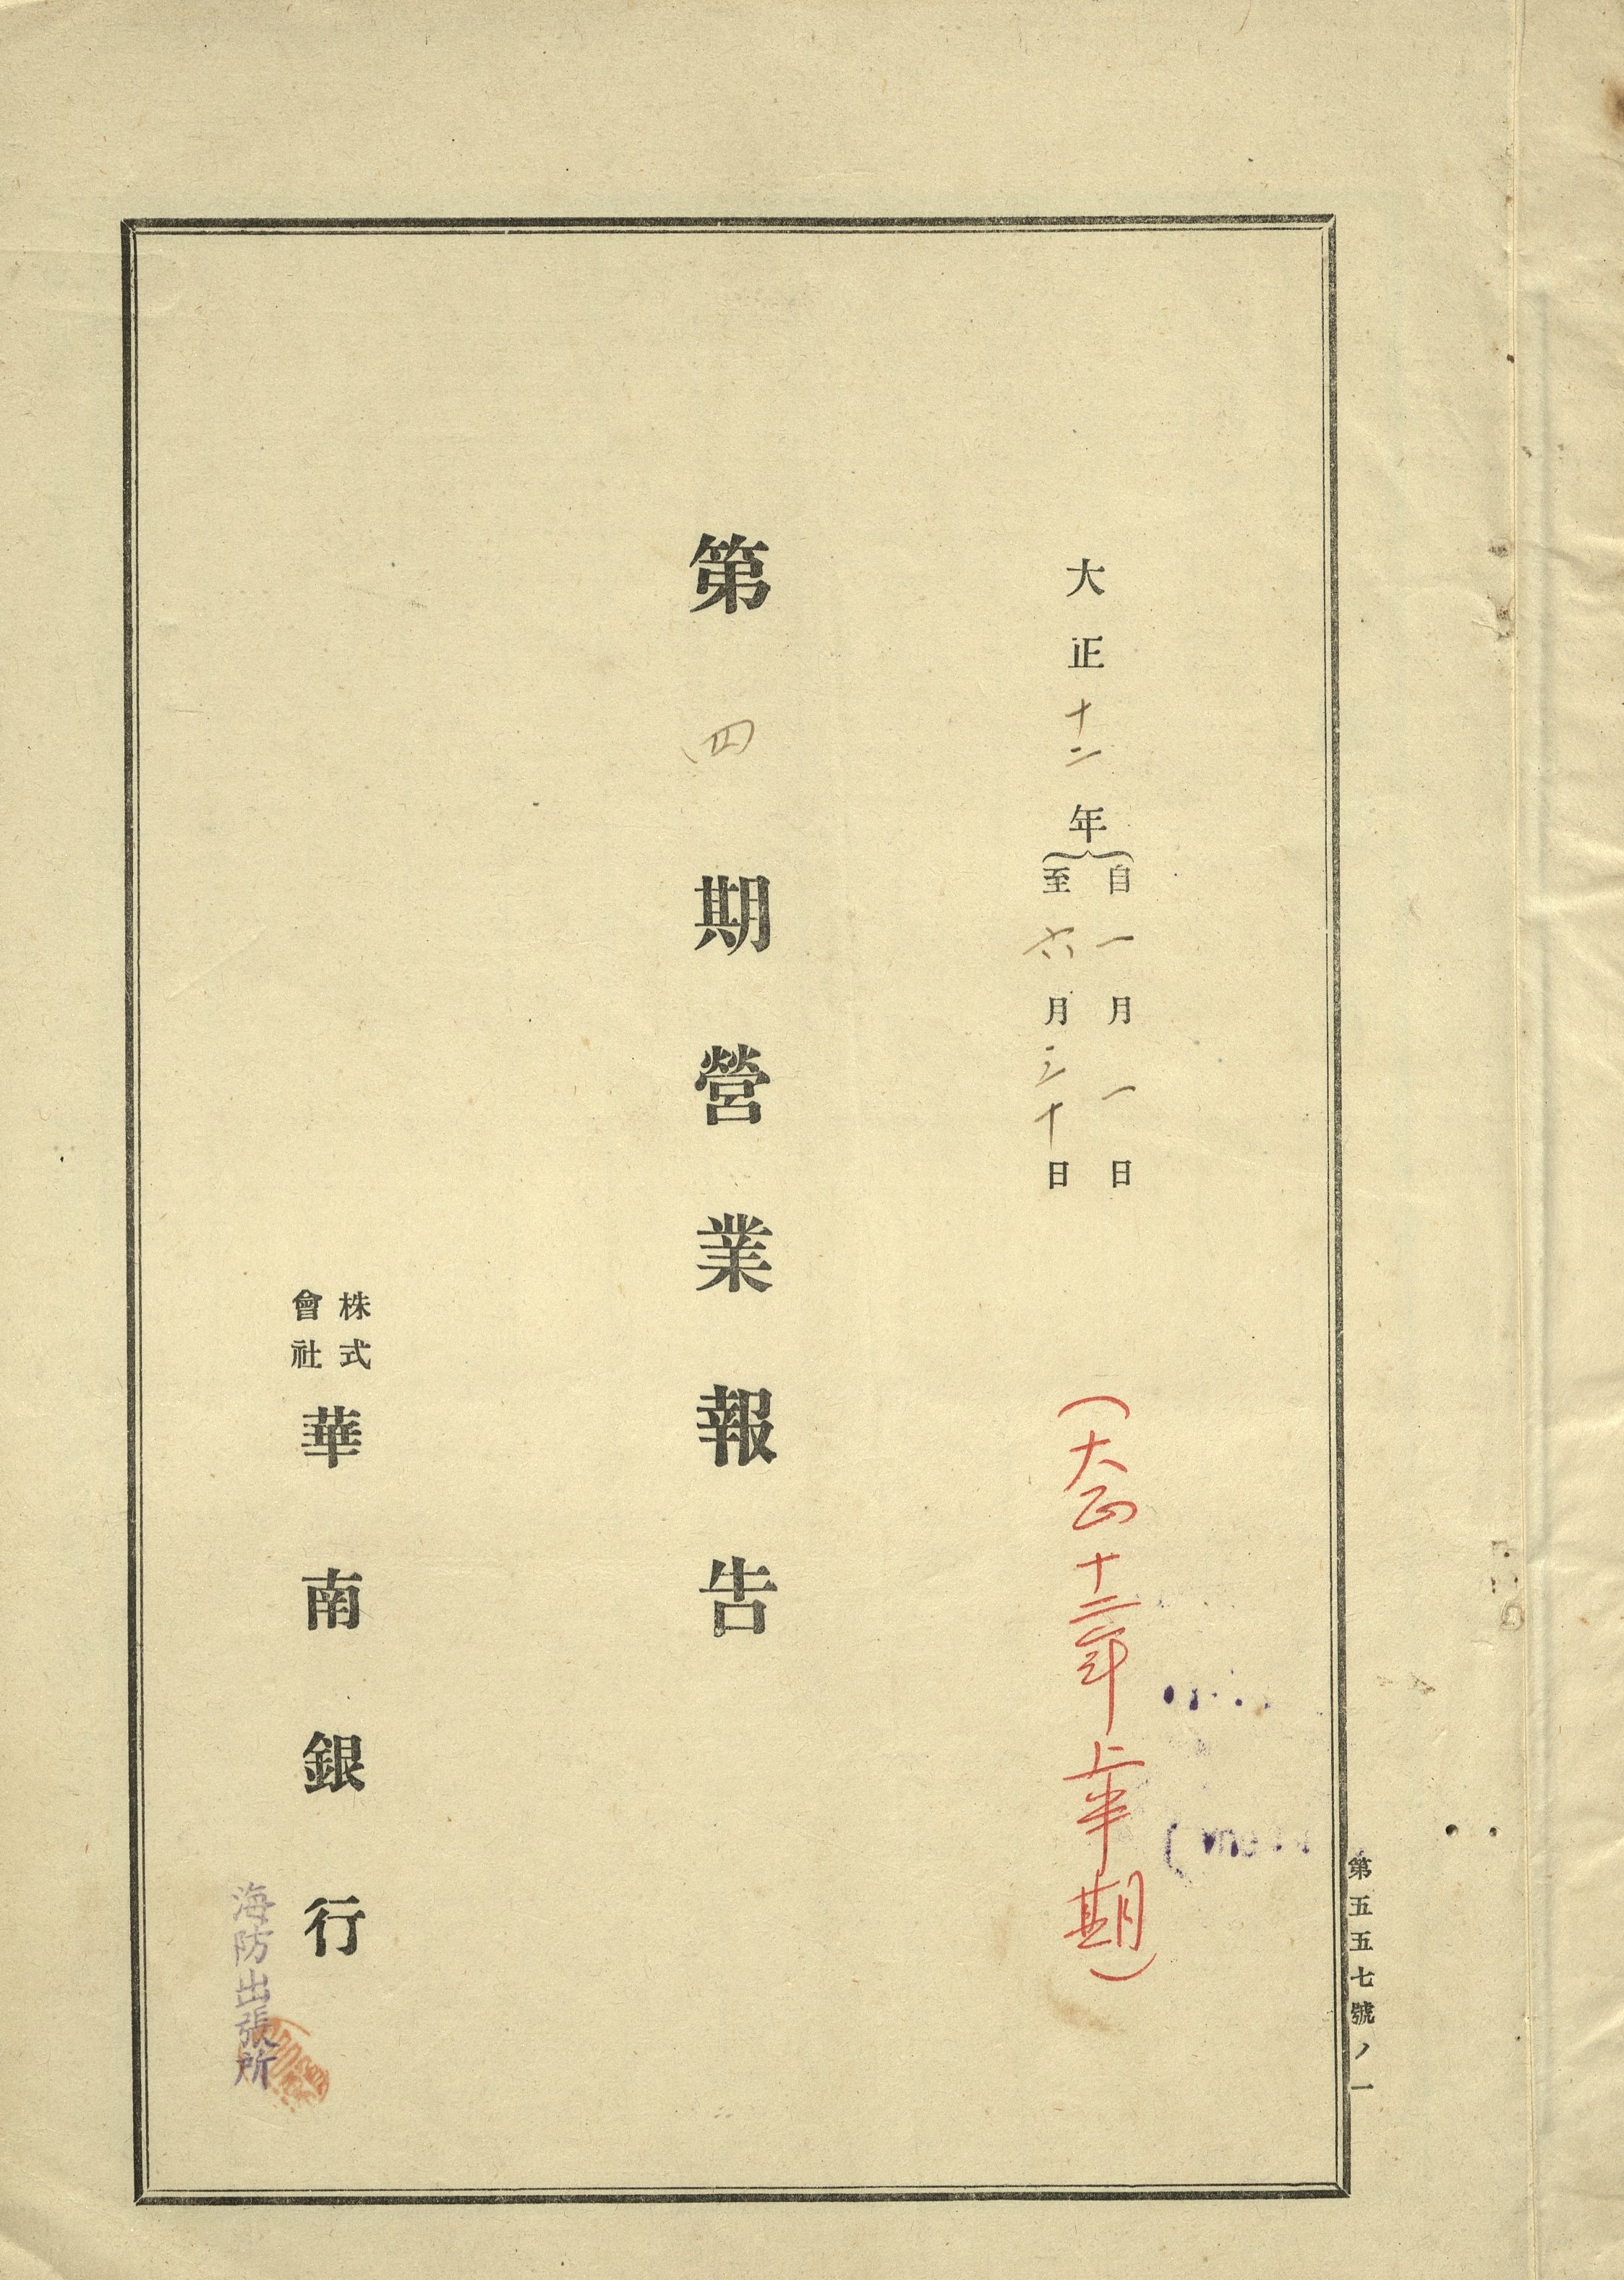 第五五七號ノ一
大正十二年
自一月一日
至六月三十日
(大正十二年上半期)
第四期營業報告
株式
會社
華南銀行
海防出張所